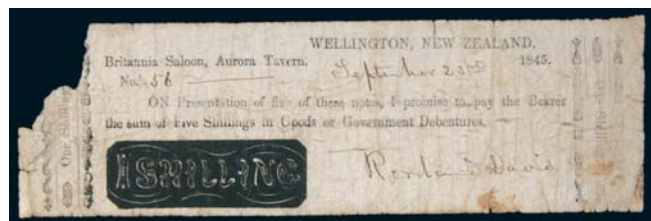 WELLINGTON, NEW ZEALAND,
Britannia Saloon, Aurora Tavern. September 23rd 1845.
No. 56
ON Presentation of five of these notes, I promise to pay the Bearer
the sum of Five Shillings in Goods or Government Debentures.
1 SHILLING
Rowland Davis
One Shilling
One Shilling